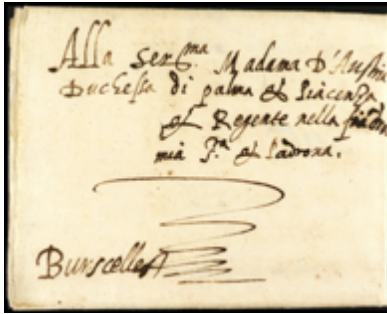 Alla Ser^ma Madama D'Austria
Duchessa di parma et Piacenza
et Regente nella fiandra
mia S.^ra et Padrona.
Burscelles